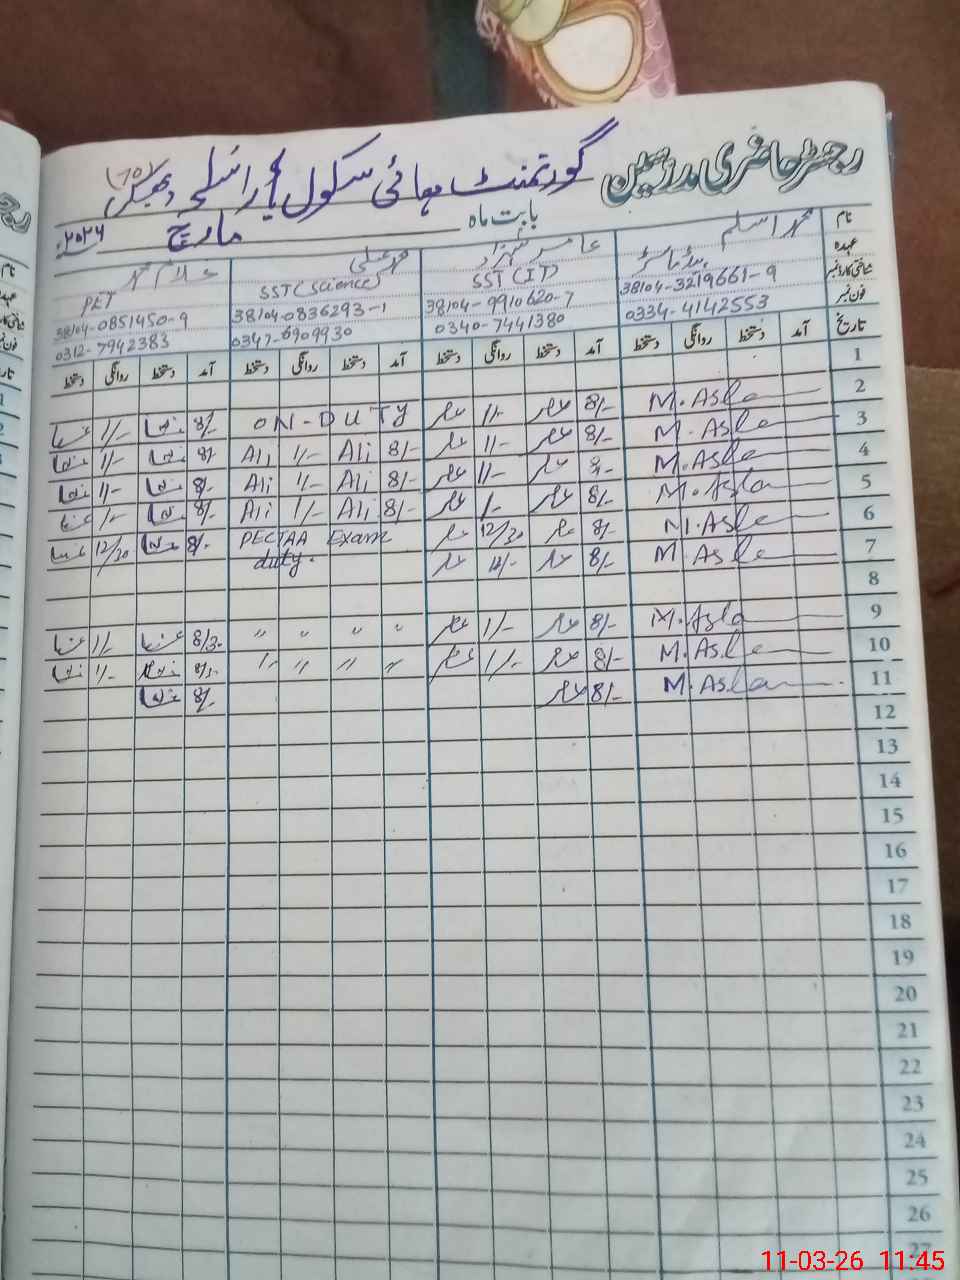 رجسٹر حاضری مدرسین گورنمنٹ ہائی سکول
بابت ماہ مارچ ۲۰۲۶ء
نام محمد اسلم عامر شہزاد محمد علی غلام محمد
عہدہ ہیڈ ماسٹر SST (IT) SST (Science) PET
شناختی کارڈ نمبر 38104-3219661-9 38104-9910620-7 38104-0836293-1 38104-0851450-9
فون نمبر 0334-4142553 0340-7441380 0347-6909930 0312-7942383
تاریخ آمد دستخط روانگی دستخط آمد دستخط روانگی دستخط آمد دستخط روانگی دستخط آمد دستخط روانگی دستخط
1
2 M.Asla 8/- عامر 1/- عامر ON-DUTY 8/- 1/-
3 M.Asla 8/- عامر 1/- عامر 8/- Ali 1/- Ali 8/- 1/-
4 M.Asla 8/- عامر 1/- عامر 8/- Ali 1/- Ali 8/- 1/-
5 M.Asla 8/- عامر 1/- عامر 8/- Ali 1/- Ali 8/- 1/-
6 M.Asla 8/- عامر 12/30 عامر PECTAA Exam 8/- 12/30
7 M.Asla 8/- عامر عامر duty.
8
9 M.Asla 8/- عامر 1/- عامر " " " " 8/30 1/-
10 M.Asla 8/- عامر 1/- عامر " " " " 1/-
11 M.Aslam 8/- عامر 8/-
12
13
14
15
16
17
18
19
20
21
22
23
24
25
26
27
11-03-26 11:45